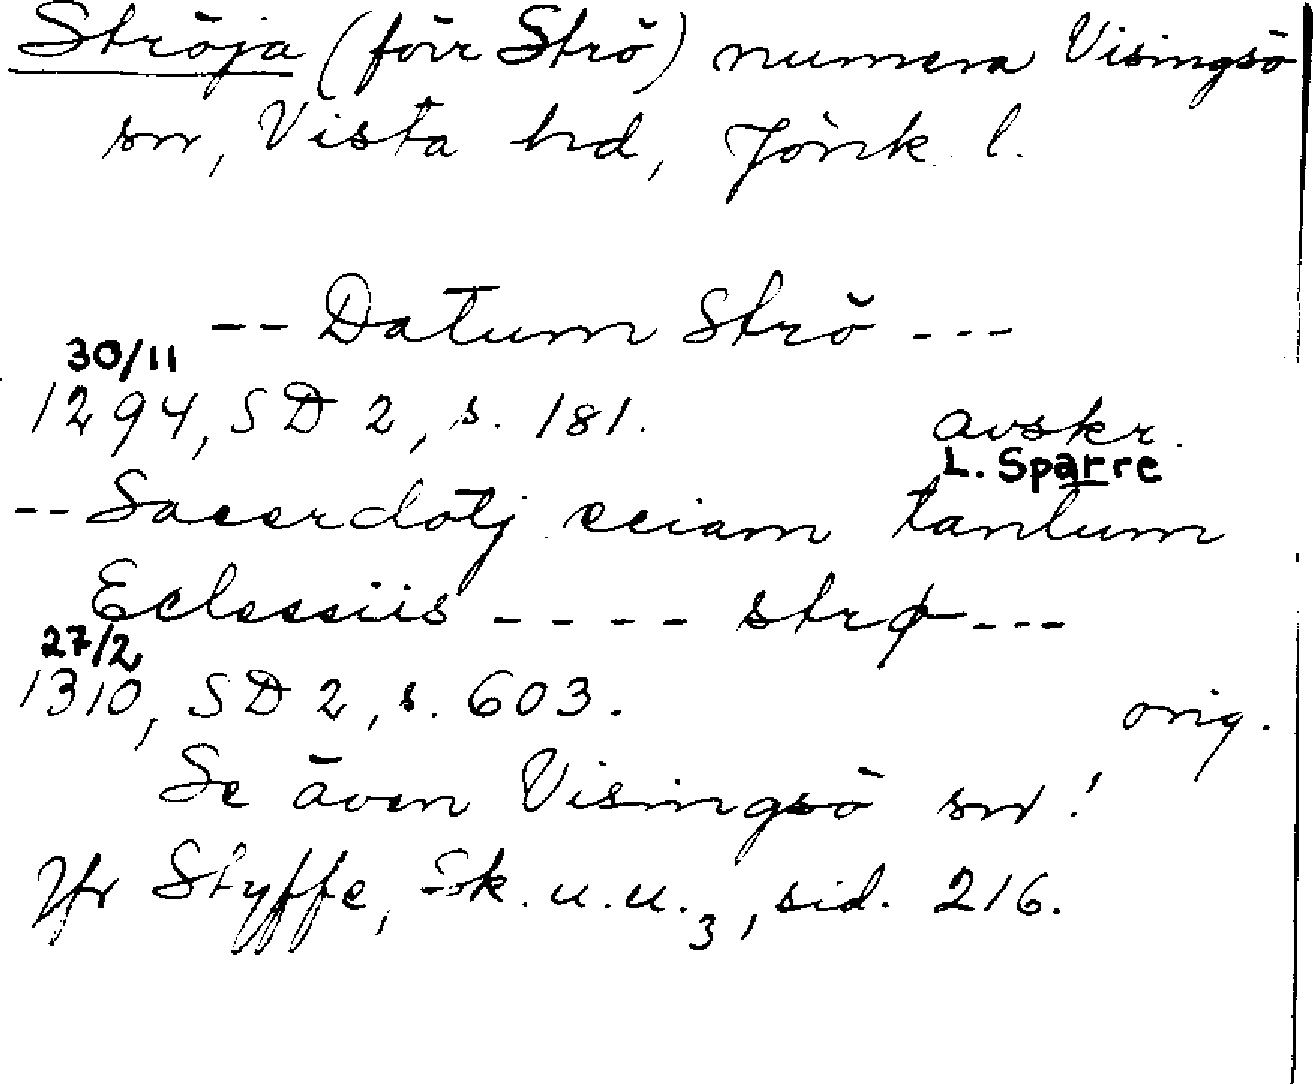 Ströja (förr Strö) numera Visingsö
sn, Vista hd, Jönk. l.
-- Datum Strö ---
30/11
1294, SD 2, s. 181. avskr.
L. Sparre
-- Sacerdotj eciam tantum
Eclesiis ---- strø ---
27/2
1310, SD 2, s. 603. orig.
Se även Visingsö sn!
Jfr Styffe, Sk. u. u. 3, sid. 216.